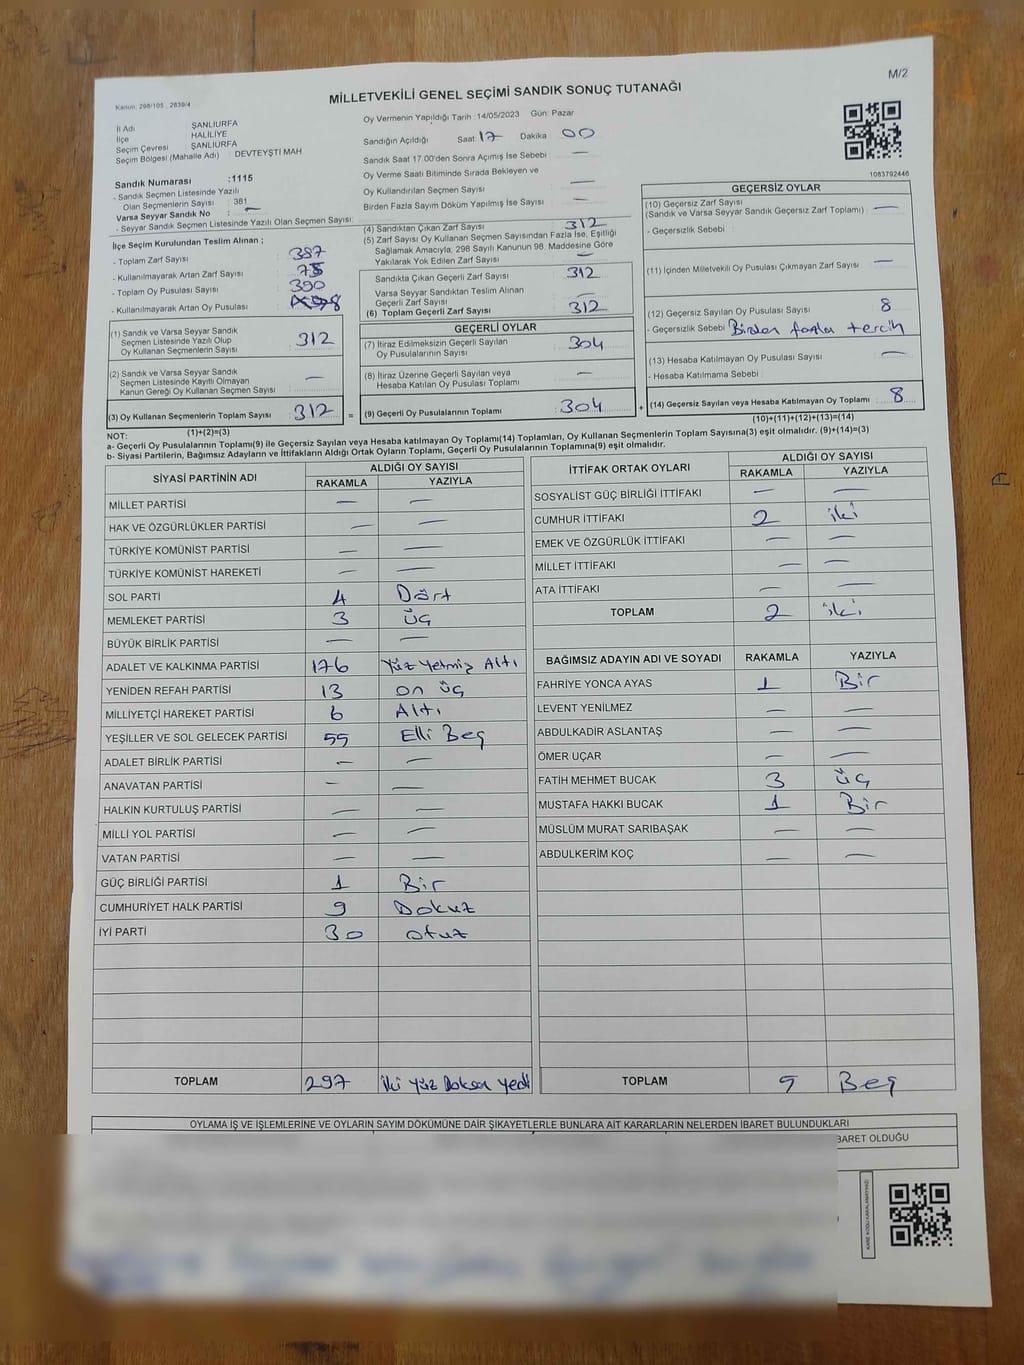 M/2
Kanun: 298/105 , 2839/4
MİLLETVEKİLİ GENEL SEÇİMİ SANDIK SONUÇ TUTANAĞI
İl Adı ŞANLIURFA
İlçe HALİLİYE
Seçim Çevresi ŞANLIURFA
Seçim Bölgesi (Mahalle Adı) : DEVTEYŞTİ MAH.
Sandık Numarası :1115
- Sandık Seçmen Listesinde Yazılı
Olan Seçmenlerin Sayısı : 381
Varsa Seyyar Sandık No : —
- Seyyar Sandık Seçmen Listesinde Yazılı Olan Seçmen Sayısı:
Oy Vermenin Yapıldığı Tarih :14/05/2023 Gün: Pazar
Sandığın Açıldığı Saat 17 Dakika 00
Sandık Saat 17.00'den Sonra Açımış İse Sebebi : —
Oy Verme Saati Bitiminde Sırada Bekleyen ve
Oy Kullandırılan Seçmen Sayısı : —
Birden Fazla Sayım Döküm Yapılmış İse Sayısı : —
1083792446
İlçe Seçim Kurulundan Teslim Alınan ;
- Toplam Zarf Sayısı : 387
- Kullanılmayarak Artan Zarf Sayısı : 75
- Toplam Oy Pusulası Sayısı : 390
- Kullanılmayarak Artan Oy Pusulası : 78
(1) Sandık ve Varsa Seyyar Sandık
Seçmen Listesinde Yazılı Olup
Oy Kullanan Seçmenlerin Sayısı : 312
(2) Sandık ve Varsa Seyyar Sandık
Seçmen Listesinde Kayıtlı Olmayan
Kanun Gereği Oy Kullanan Seçmen Sayısı : —
(3) Oy Kullanan Seçmenlerin Toplam Sayısı : 312 =
(1)+(2)=(3)
(4) Sandıktan Çıkan Zarf Sayısı : 312
(5) Zarf Sayısı Oy Kullanan Seçmen Sayısından Fazla İse, Eşitliği
Sağlamak Amacıyla, 298 Sayılı Kanunun 98. Maddesine Göre
Yakılarak Yok Edilen Zarf Sayısı : —
Sandıkta Çıkan Geçerli Zarf Sayısı : 312
Varsa Seyyar Sandıktan Teslim Alınan
Geçerli Zarf Sayısı : —
(6) Toplam Geçerli Zarf Sayısı : 312
GEÇERLİ OYLAR
(7) İtiraz Edilmeksizin Geçerli Sayılan
Oy Pusulalarının Sayısı : 304
(8) İtiraz Üzerine Geçerli Sayılan veya
Hesaba Katılan Oy Pusulası Toplamı : —
(9) Geçerli Oy Pusulalarının Toplamı : 304 +
GEÇERSİZ OYLAR
(10) Geçersiz Zarf Sayısı
(Sandık ve Varsa Seyyar Sandık Geçersiz Zarf Toplamı) : —
- Geçersizlik Sebebi :
(11) İçinden Milletvekili Oy Pusulası Çıkmayan Zarf Sayısı : —
(12) Geçersiz Sayılan Oy Pusulası Sayısı : 8
- Geçersizlik Sebebi : Birden fazla tercih
(13) Hesaba Katılmayan Oy Pusulası Sayısı : —
- Hesaba Katılmama Sebebi :
(14) Geçersiz Sayılan veya Hesaba Katılmayan Oy Toplamı : 8
(10)+(11)+(12)+(13)=(14)
NOT:
a- Geçerli Oy Pusulalarının Toplamı(9) ile Geçersiz Sayılan veya Hesaba katılmayan Oy Toplamı(14) Toplamları, Oy Kullanan Seçmenlerin Toplam Sayısına(3) eşit olmalıdır. (9)+(14)=(3)
b- Siyasi Partilerin, Bağımsız Adayların ve İttifakların Aldığı Ortak Oyların Toplamı, Geçerli Oy Pusulalarının Toplamına(9) eşit olmalıdır.
SİYASİ PARTİNİN ADI ALDIĞI OY SAYISI
RAKAMLA YAZIYLA
MİLLET PARTİSİ — —
HAK VE ÖZGÜRLÜKLER PARTİSİ — —
TÜRKİYE KOMÜNİST PARTİSİ — —
TÜRKİYE KOMÜNİST HAREKETİ — —
SOL PARTİ 4 Dört
MEMLEKET PARTİSİ 3 üç
BÜYÜK BİRLİK PARTİSİ — —
ADALET VE KALKINMA PARTİSİ 176 Yüz Yetmiş Altı
YENİDEN REFAH PARTİSİ 13 on üç
MİLLİYETÇİ HAREKET PARTİSİ 6 Altı
YEŞİLLER VE SOL GELECEK PARTİSİ 55 Elli Beş
ADALET BİRLİK PARTİSİ — —
ANAVATAN PARTİSİ — —
HALKIN KURTULUŞ PARTİSİ — —
MİLLİ YOL PARTİSİ — —
VATAN PARTİSİ — —
GÜÇ BİRLİĞİ PARTİSİ 1 Bir
CUMHURİYET HALK PARTİSİ 9 Dokuz
İYİ PARTİ 30 otuz
TOPLAM 297 iki Yüz Doksan yedi
İTTİFAK ORTAK OYLARI ALDIĞI OY SAYISI
RAKAMLA YAZIYLA
SOSYALİST GÜÇ BİRLİĞİ İTTİFAKI — —
CUMHUR İTTİFAKI 2 iki
EMEK VE ÖZGÜRLÜK İTTİFAKI — —
MİLLET İTTİFAKI — —
ATA İTTİFAKI — —
TOPLAM 2 iki
BAĞIMSIZ ADAYIN ADI VE SOYADI RAKAMLA YAZIYLA
FAHRİYE YONCA AYAS 1 Bir
LEVENT YENİLMEZ — —
ABDULKADİR ASLANTAŞ — —
ÖMER UÇAR — —
FATİH MEHMET BUCAK 3 üç
MUSTAFA HAKKI BUCAK 1 Bir
MÜSLÜM MURAT SARIBAŞAK — —
ABDULKERİM KOÇ — —
TOPLAM 5 Beş
OYLAMA İŞ VE İŞLEMLERİNE VE OYLARIN SAYIM DÖKÜMÜNE DAİR ŞİKAYETLERLE BUNLARA AİT KARARLARIN NELERDEN İBARET BULUNDUKLARI
İBARET OLDUĞU